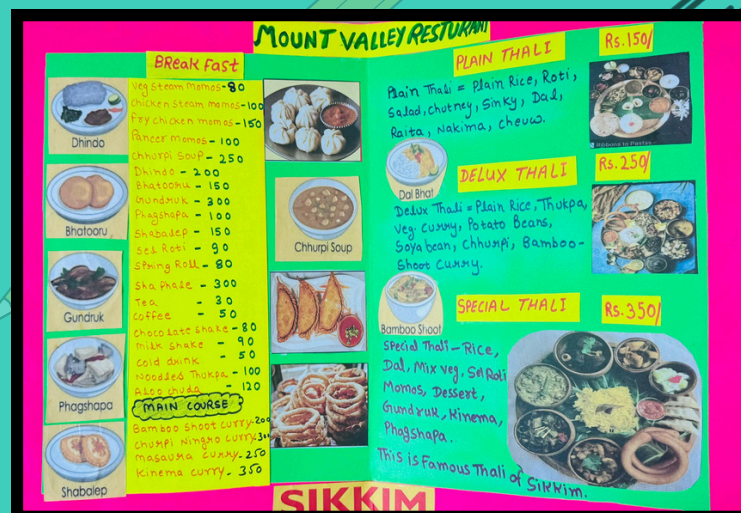 MOUNT VALLEY RESTURANT
BReak Fast
Veg steam momos-80
chicken steam momos-100
Fry chicken momos-150
Paneer momos-100
chhurpi soup-250
Dhindo-200
Bhatooru-150
Gundruk-300
Phagshapa-100
Shabalep-150
Sel Roti-90
Spring Roll-80
Sha phale-300
Tea-30
Coffee-50
chocolate shake-80
milk shake-90
cold drink-50
Nooddles Thukpa-100
Aloo chuda-120
MAIN COURSE
Bamboo shoot curry.200
churpi Ningro curry.300
masaura curry-250
Kinema curry-350
Dhindo
Bhatooru
Gundruk
Phagshapa
Shabalep
Chhurpi Soup
PLAIN THALI
Rs.150/
Plain Thali = Plain Rice, Roti,
Salad, chutney, Sinky, Dal,
Raita, Nakima, cheuw.
Dal Bhat
DELUX THALI
Rs.250/
Delux Thali = Plain Rice, Thukpa,
Veg. curry, Potato Beans,
Soyabean, chhurpi, Bamboo-
Shoot Curry.
Bamboo Shoot
SPECIAL THALI
Rs.350/
Special Thali-Rice,
Dal, Mix veg, Sel Roti
Momos, Dessert,
Gundruk, Kinema,
Phagshapa.
This is Famous Thali of Sikkim.
SIKKIM